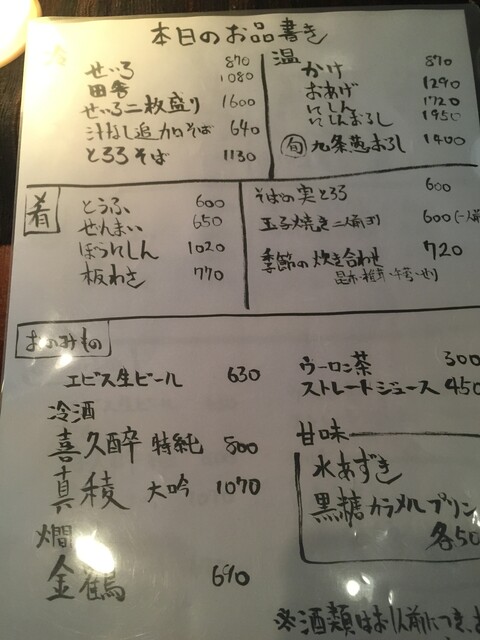 本日のお品書き
せいろ 870
田舎 1080
せいろ二枚盛り 1600
汁なし追加そば 640
とろろそば 1130
温
かけ 870
おあげ 1290
にしん 1720
にしんおろし 1950
旬 九条葱おろし 1400
肴
とうふ 600
ぜんまい 650
ぼうにしん 1020
板わさ 770
そばの実とろろ 600
玉子焼き 二人前より 600(一人前
季節の炊き合わせ 720
おのみもの
エビス生ビール 630
冷酒
喜久酔 特純 800
真稜 大吟 1070
燗
金鶴 690
ウーロン茶 300
ストレートジュース 450
甘味
水あずき
黒糖カラメルプリン
各50
※酒類はお1人前につき、